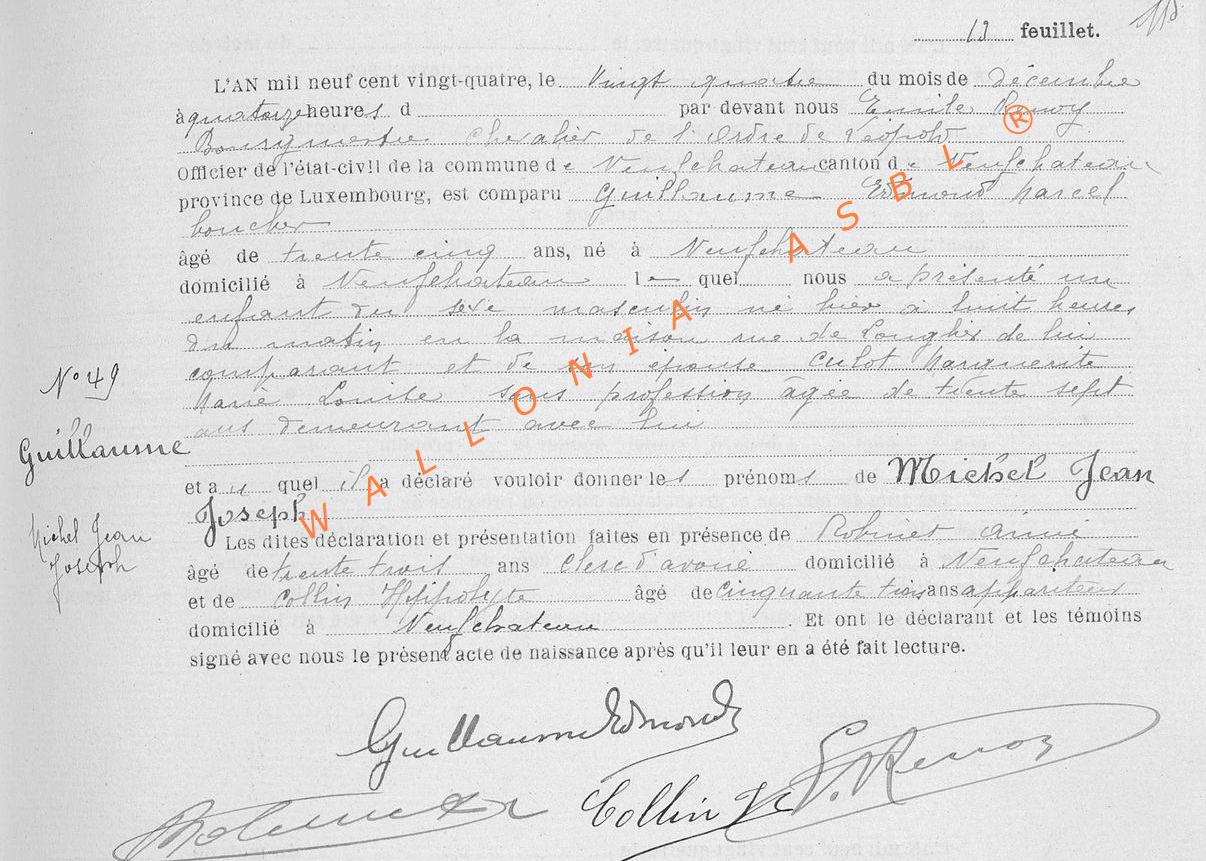 13 feuillet.
L'AN mil neuf cent vingt-quatre, le Vingt quatre du mois de décembre
à quatorze heures d par devant nous Emile
Bourgmestre Chevalier de l'Ordre de Léopold
Officier de l'état-civil de la commune de Neufchateau canton de Neufchateau
province de Luxembourg, est comparu Guillaume Edmond Marcel
boucher
âgé de trente cinq ans, né à Neufchateau
domicilié à Neufchateau le quel nous a présenté un
enfant du sexe masculin né hier à huit heures
du matin en la maison rue de Longlier de lui
comparant et de son épouse Culot Marguerite
Marie Louise sans profession âgée de trente sept
ans demeurant avec lui
et au quel il a déclaré vouloir donner les prénoms de Michel Jean
Joseph
Les dites déclaration et présentation faites en présence de Robinet Aimé
âgé de trente trois ans clerc d'avoué domicilié à Neufchateau
et de Collin Hippolyte âgé de cinquante trois ans appariteur
domicilié à Neufchateau . Et ont le déclarant et les témoins
signé avec nous le présent acte de naissance après qu'il leur en a été fait lecture.
N° 49
Guillaume
Michel Jean
Joseph
Guillaume Edmond
Collin H
WALLONIA ASBL ®